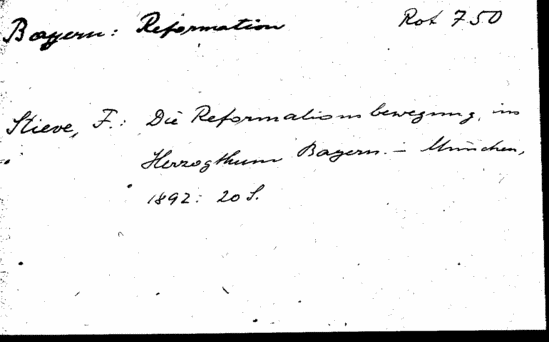 Bayern: Reformation Rot 750
Stieve, F.: Die Reformationsbewegung im
Herzogthum Bayern. – München,
1892. 20 S.